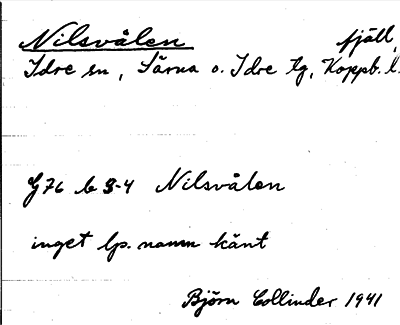 Nilsvålen fjäll,
Idre sn, Särna o. Idre tg, Koppb. l.
G76 b 3-4 Nilsvålen
inget lp. namn känt
Björn Collinder 1941